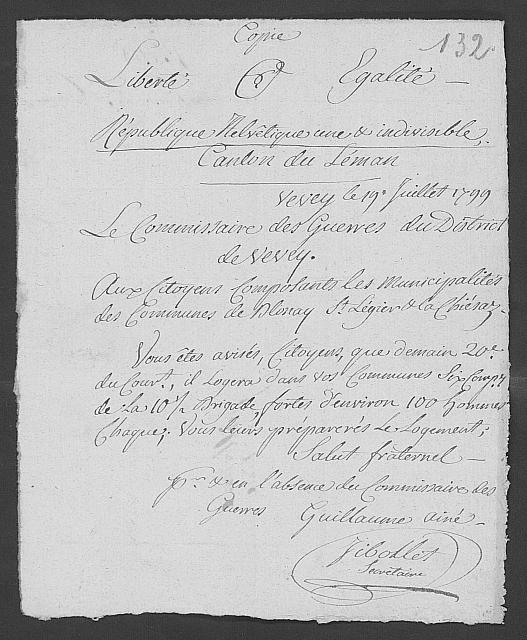 Copie
132
Liberté Egalité —
République Helvétique une & indivisible.
Canton du Léman
Vevey le 19e Juillet 1799
Le Commissaire des Guerres du District
de Vevey.
Aux Citoyens Composants les Municipalités
des Communes de Blonay St. Légier & la Chiésaz —
Vous êtes avisés, Citoyens, que demain 20e
du Court., il Logera dans vos Communes Six Compes
de La 10e ½ Brigade, fortes d'environ 100 Hommes
Chaque; Vous leurs préparerés Le Logement;
Salut fraternel —
pr. & en l'absence du Commissaire des
Guerres Guillaume ainé —
Secretaire